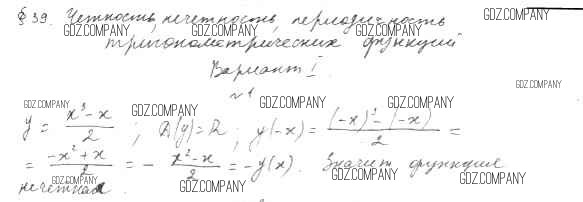 § 39. Четность, нечетность, периодичность
тригонометрических функций
Вариант I.
№1
y = (x³ - x)/2 ; D(y) = R ; y(-x) = ((-x)³ - (-x))/2 =
= (-x² + x)/2 = - (x² - x)/2 = -y(x). Значит функция
нечетная.
GDZ.COMPANY
GDZ.COMPANY
GDZ.COMPANY
GDZ.COMPANY
GDZ.COMPANY
GDZ.COMPANY
GDZ.COMPANY
GDZ.COMPANY
GDZ.COMPANY
GDZ.COMPANY
GDZ.COMPANY
GDZ.COMPANY
GDZ.COMPANY